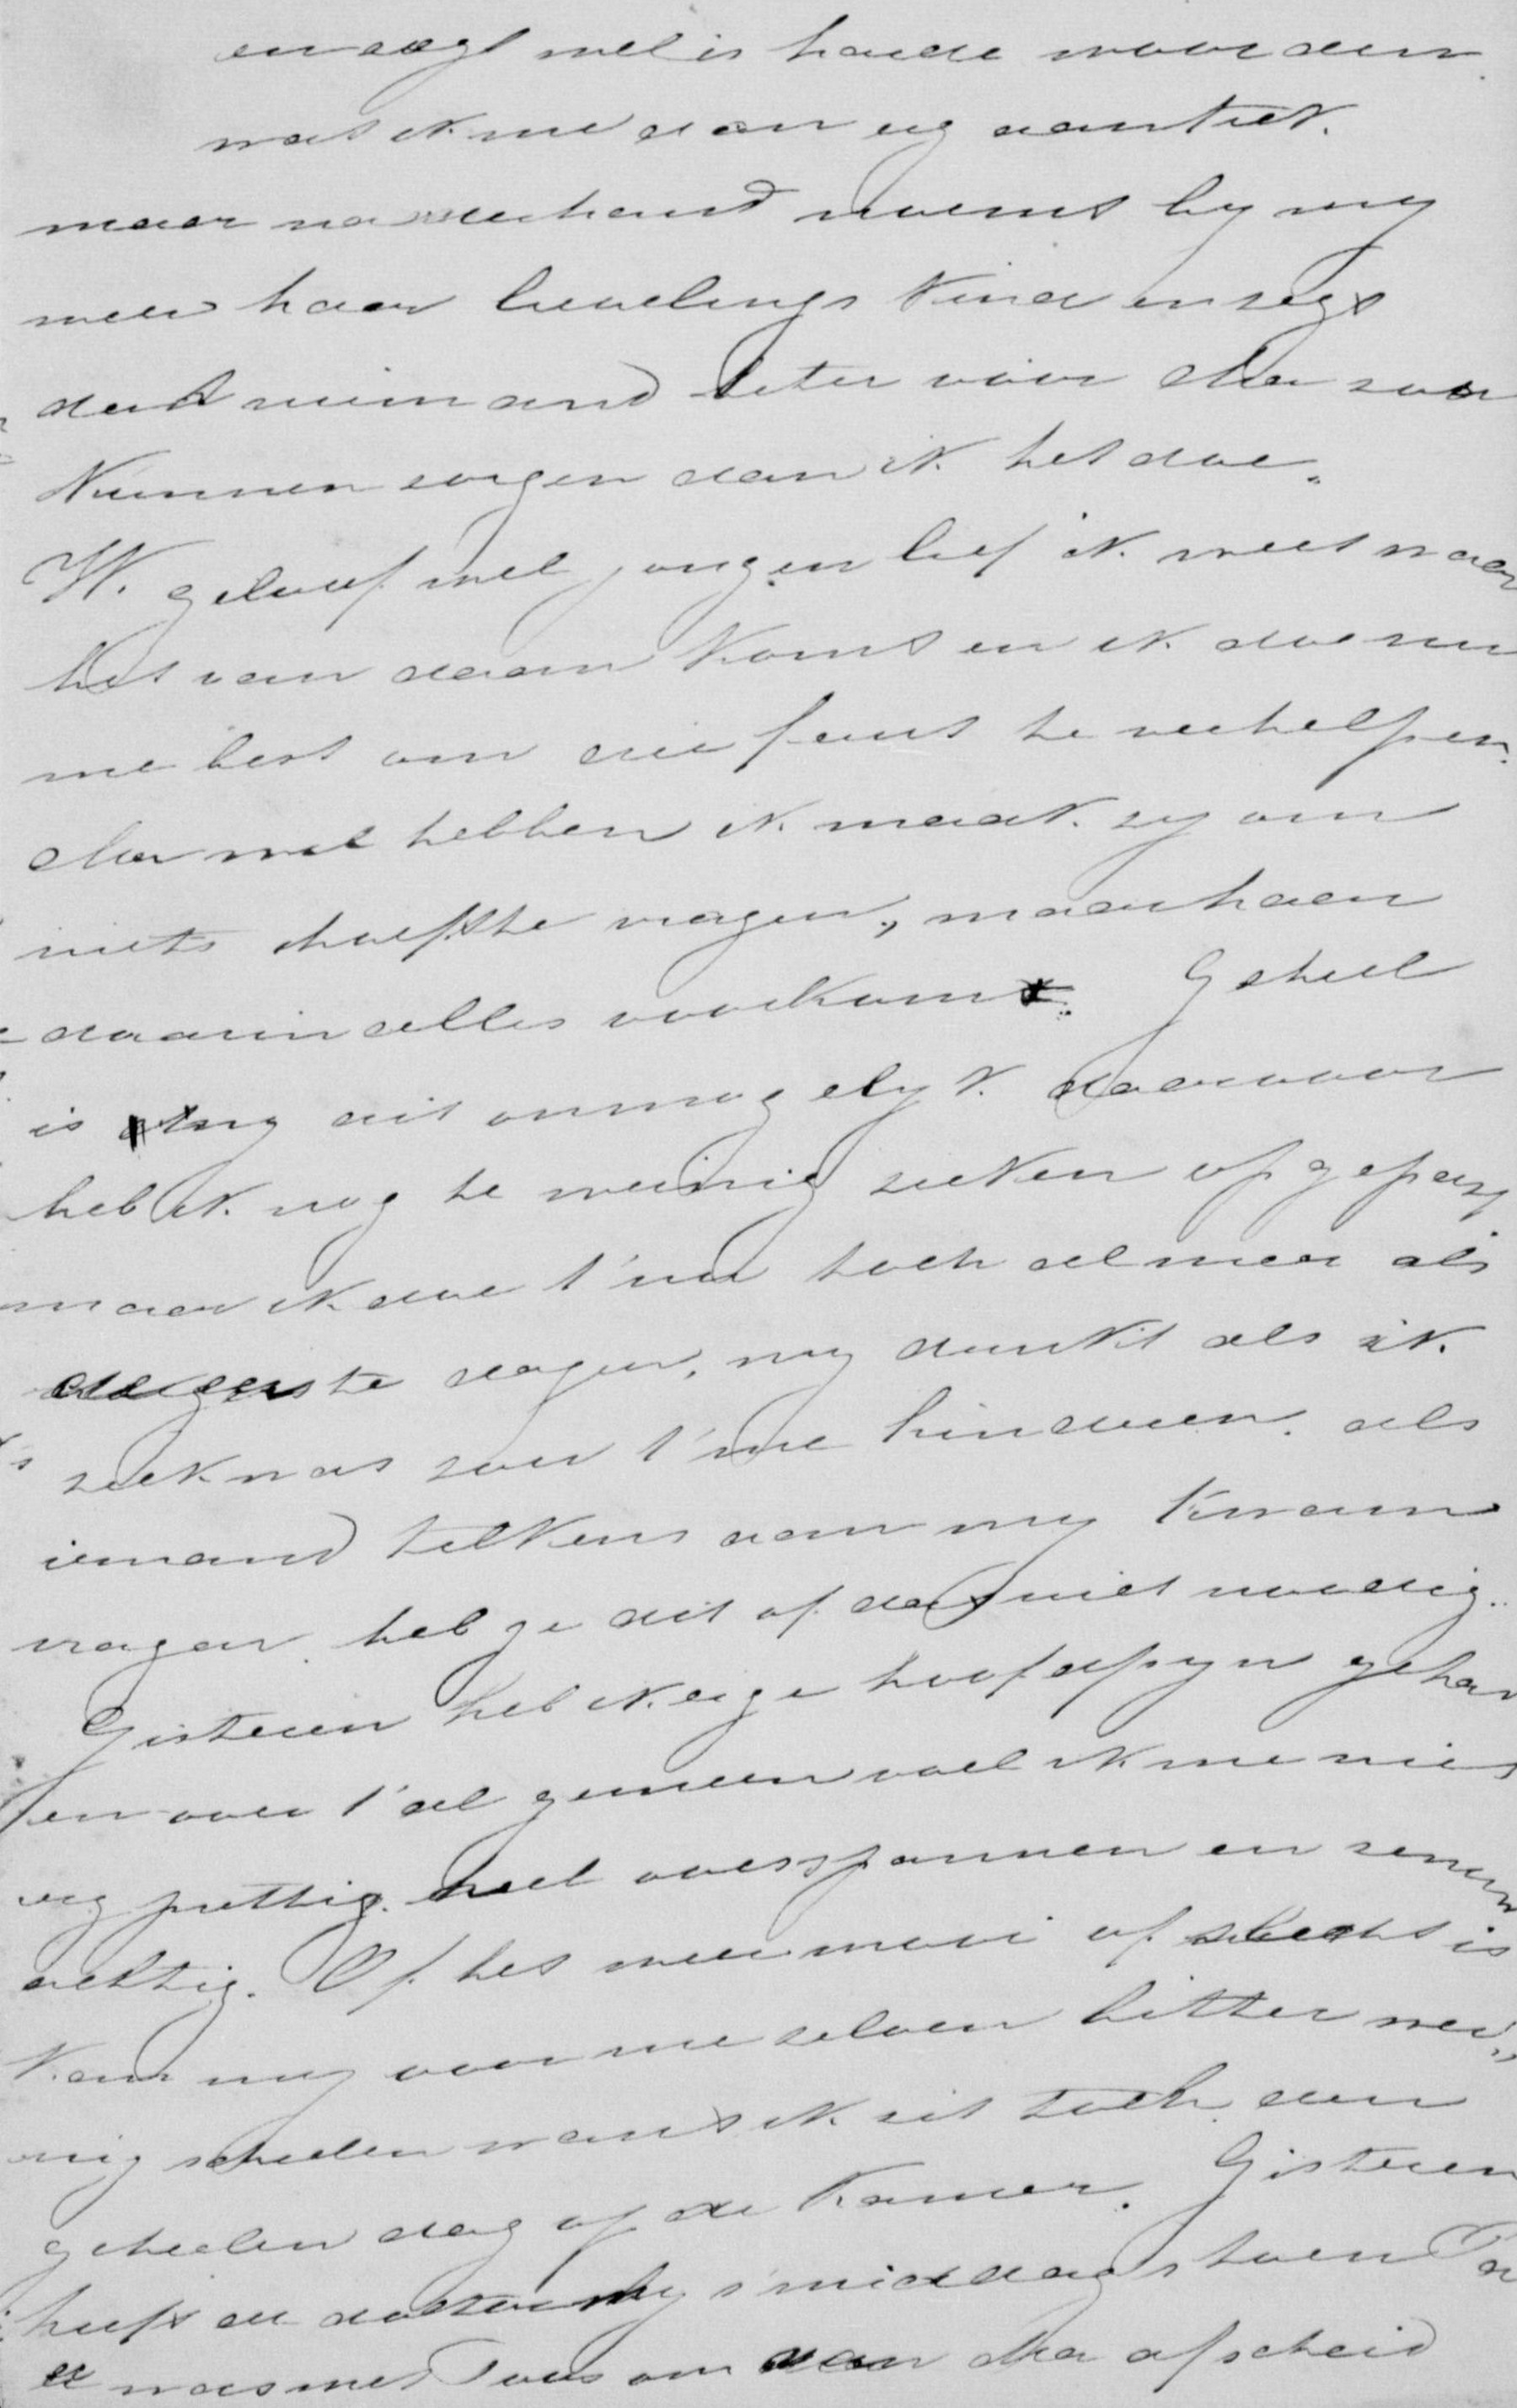 en zegt wel is harde woorden
wat ik me dan erg aantrek.
maar naderhand noemt zy my
weer haar lievelings kind en zegt
dat niemand beter voor Ma zou
kunnen zorgen dan ik het doe.
Ik geloof wel jongen lief ik weet waar
het van daan komt en ik doe nu
me best om die fout te verhelpen.
Ma wil hebben ik maak zy om
niets hoeft te vragen, maar haar
daarin alles voorkom. Geheel
is my dit onmogelyk daarvoor
heb ik nog te weinig zieken opgepast
maar ik doe t nu toch al meer als
de eerste dagen, my dunkt als ik
ziek was zou t me hinderen als
iemand telkens aan my kwam
vragen heb je dit of dat niet noodig.
Gisteren heb ik erge hoofdpyn gehad
en over t algemeen voel ik me niet
erg prettig heel overspannen en zenuw
achtig. Of het weer mooi of slecht is
kan my voor me zelven bitter wei„
nig schelen want ik zit toch den
geheelen dag op de kamer. Gisteren
heeft de dokter my s'middags toen Pa
er was met Toos om van Ma afscheid